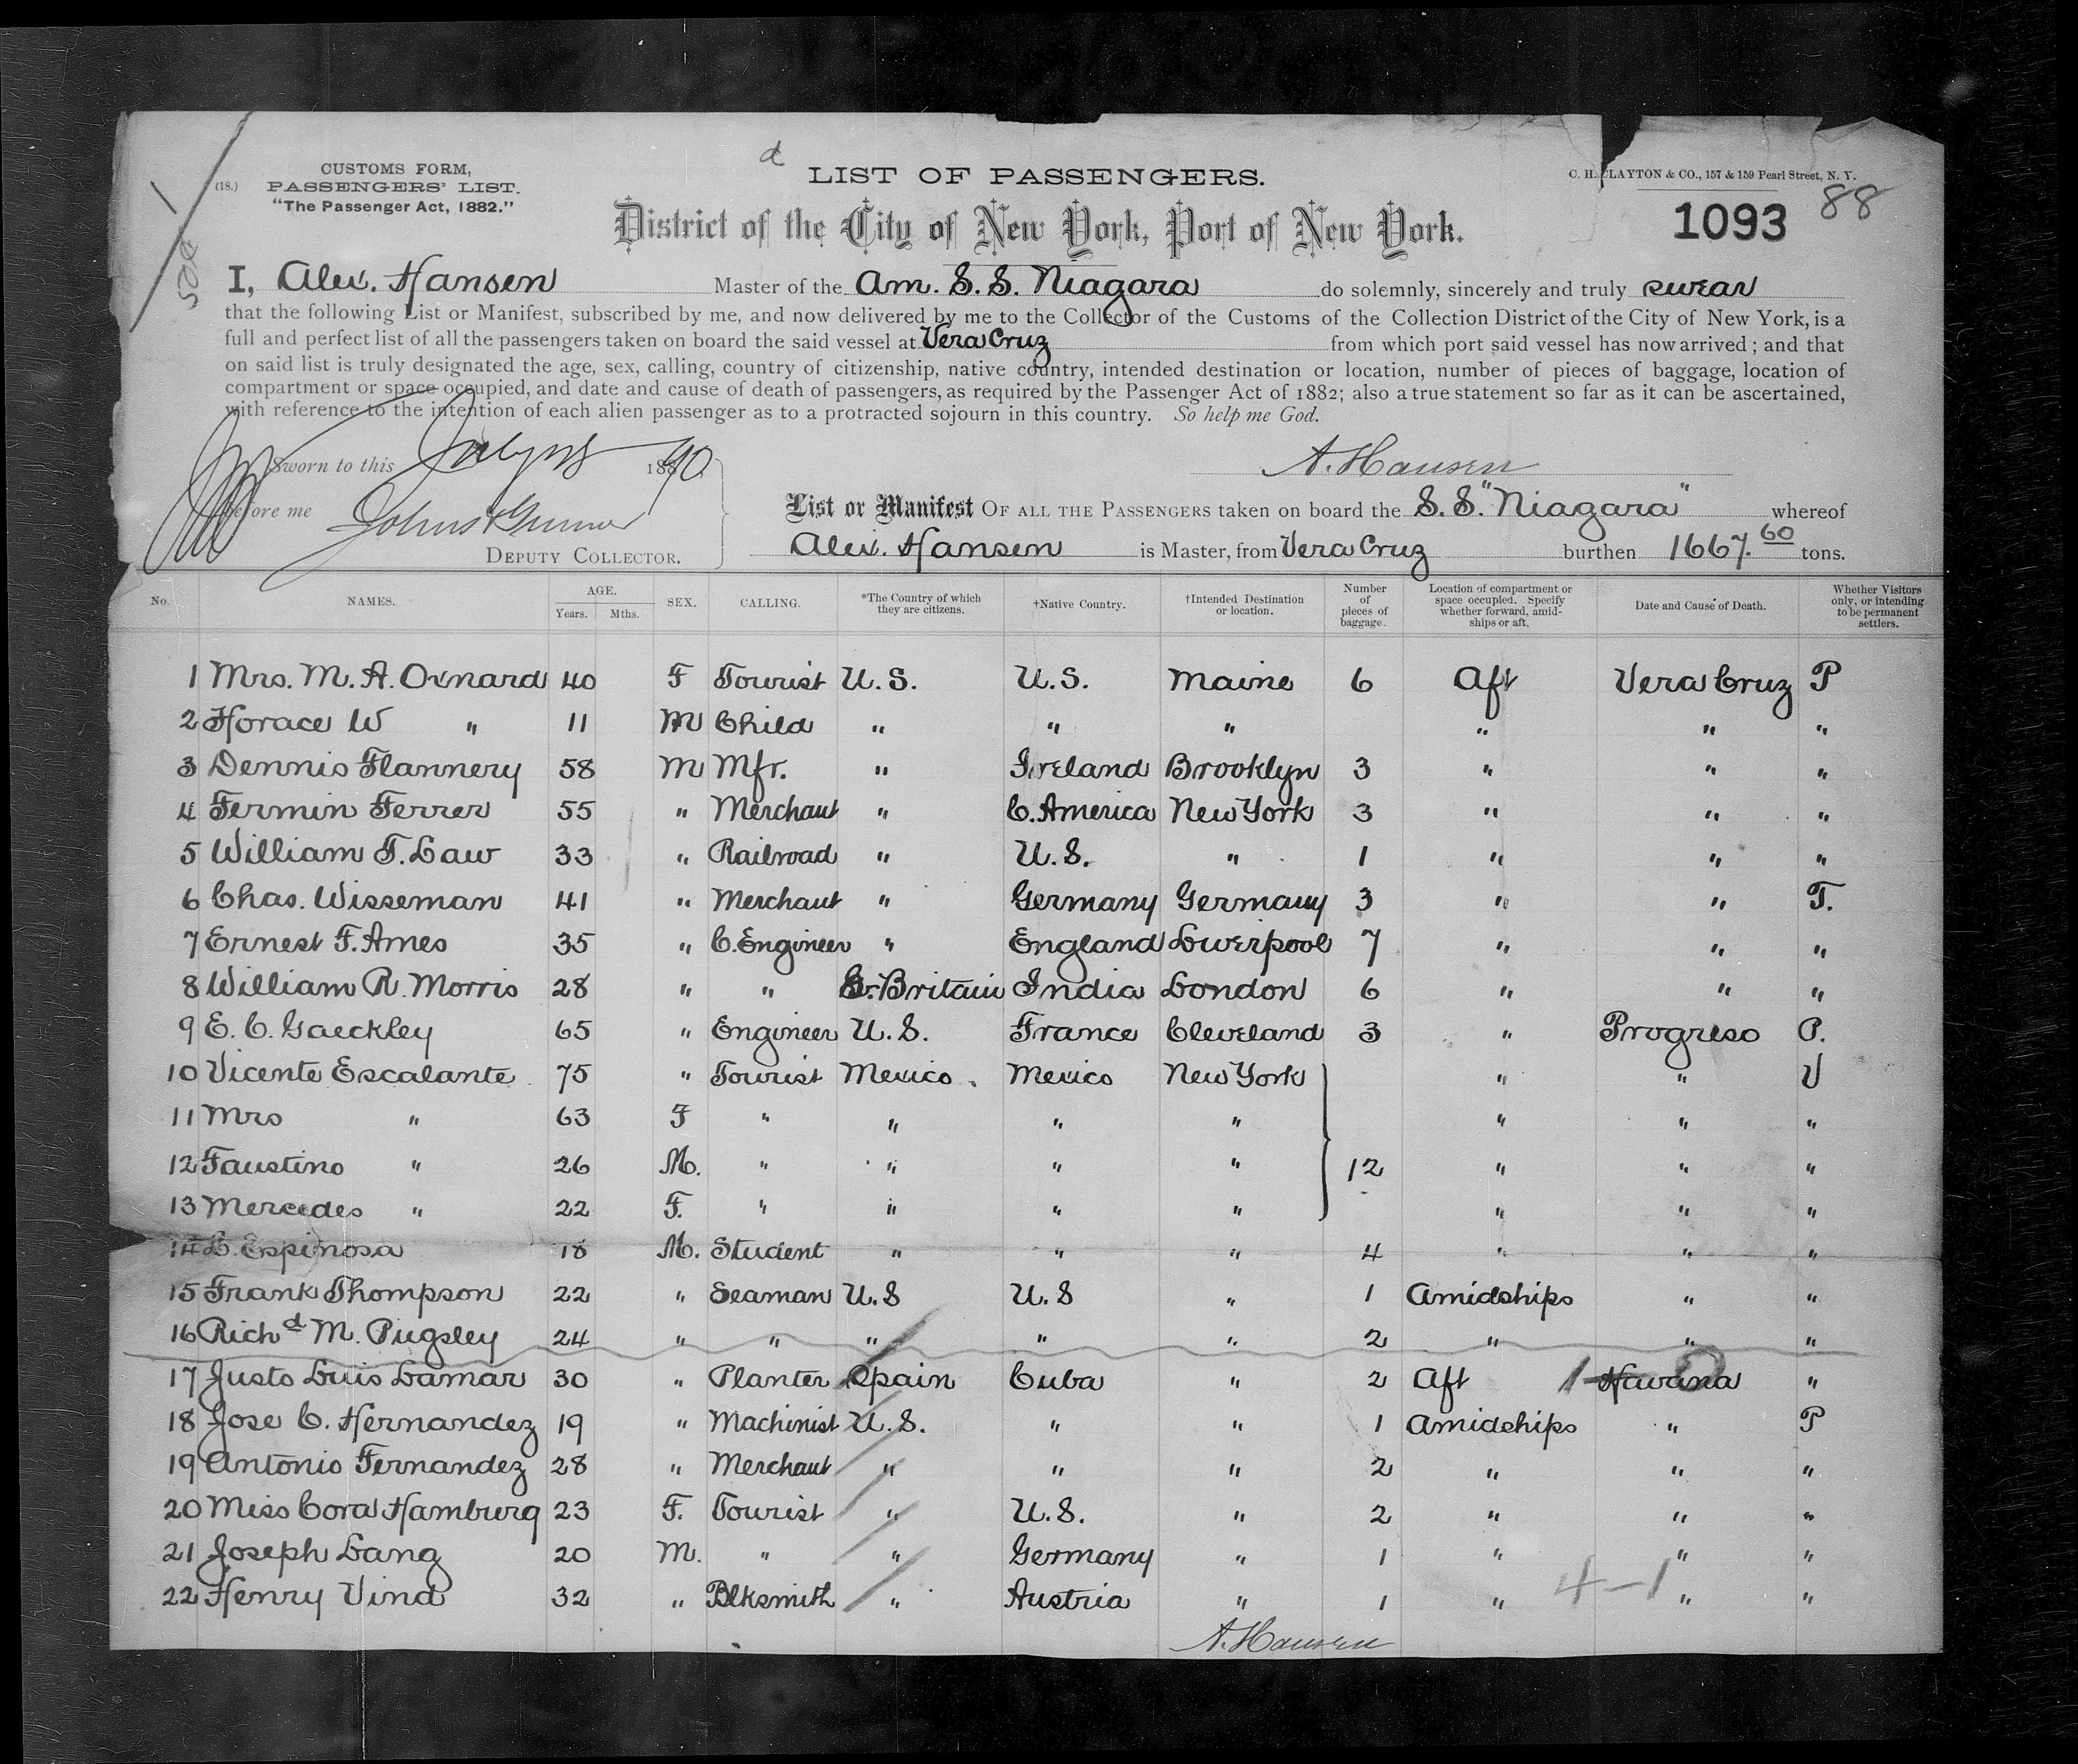 d
LIST OF PASSENGERS.
CUSTOMS FORM,
(18.) PASSENGERS' LIST.
"The Passenger Act, 1882."
C. H. CLAYTON & CO., 157 & 159 Pearl Street, N. Y.
1093 88
District of the City of New York, Port of New York.
I, Alex. Hansen Master of the Am. S.S. Niagara do solemnly, sincerely and truly swear
that the following List or Manifest, subscribed by me, and now delivered by me to the Collector of the Customs of the Collection District of the City of New York, is a
full and perfect list of all the passengers taken on board the said vessel at Vera Cruz from which port said vessel has now arrived; and that
on said list is truly designated the age, sex, calling, country of citizenship, native country, intended destination or location, number of pieces of baggage, location of
compartment or space occupied, and date and cause of death of passengers, as required by the Passenger Act of 1882; also a true statement so far as it can be ascertained,
with reference to the intention of each alien passenger as to a protracted sojourn in this country. So help me God.
Sworn to this July 18 1890
A. Hansen
before me
DEPUTY COLLECTOR.
List or Manifest OF ALL THE PASSENGERS taken on board the S.S. "Niagara" whereof
Alex. Hansen is Master, from Vera Cruz burthen 1667.60 tons.
No. NAMES. AGE. Years. Mths. SEX. CALLING. *The Country of which they are citizens. †Native Country. †Intended Destination or location. Number of pieces of baggage. Location of compartment or space occupied. Specify whether forward, amidships or aft. Date and Cause of Death. Whether Visitors only, or intending to be permanent settlers.
1 Mrs. M. A. Oxnard 40 F Tourist U.S. U.S. Maine 6 Aft Vera Cruz P
2 Horace W " 11 M Child " " " " " "
3 Dennis Flannery 58 M Mfr. " Ireland Brooklyn 3 " " "
4 Fermin Ferrer 55 " Merchant " C. America New York 3 " " "
5 William T. Law 33 " Railroad " U.S. " 1 " " "
6 Chas. Wisseman 41 " Merchant " Germany Germany 3 " " T.
7 Ernest F. Ames 35 " C. Engineer " England Liverpool 7 " " "
8 William R. Morris 28 " " G. Britain India London 6 " " "
9 E. C. Gaeckley 65 " Engineer U.S. France Cleveland 3 " Progreso P.
10 Vicente Escalante 75 " Tourist Mexico Mexico New York " " V
11 Mrs " 63 F " " " " " " "
12 Faustino " 26 M. " " " " 12 " " "
13 Mercedes " 22 F. " " " " " " "
14 L. Espinosa 18 M. Student " " " 4 " " "
15 Frank Thompson 22 " Seaman U.S U.S " 1 Amidships " "
16 Richd M. Pugsley 24 " " " " " 2 " " "
17 Justo Luis Lamar 30 " Planter Spain Cuba " 2 Aft 1-0 Havana "
18 Jose C. Hernandez 19 " Machinist U.S. " " 1 Amidships " P
19 Antonio Fernandez 28 " Merchant " " " 2 " " "
20 Miss Cora Hamburg 23 F. Tourist " U.S. " 2 " " "
21 Joseph Lang 20 M. " " Germany " 1 " " "
22 Henry Vind 32 " Blksmith " Austria " 1 " 4-1 " "
A. Hansen